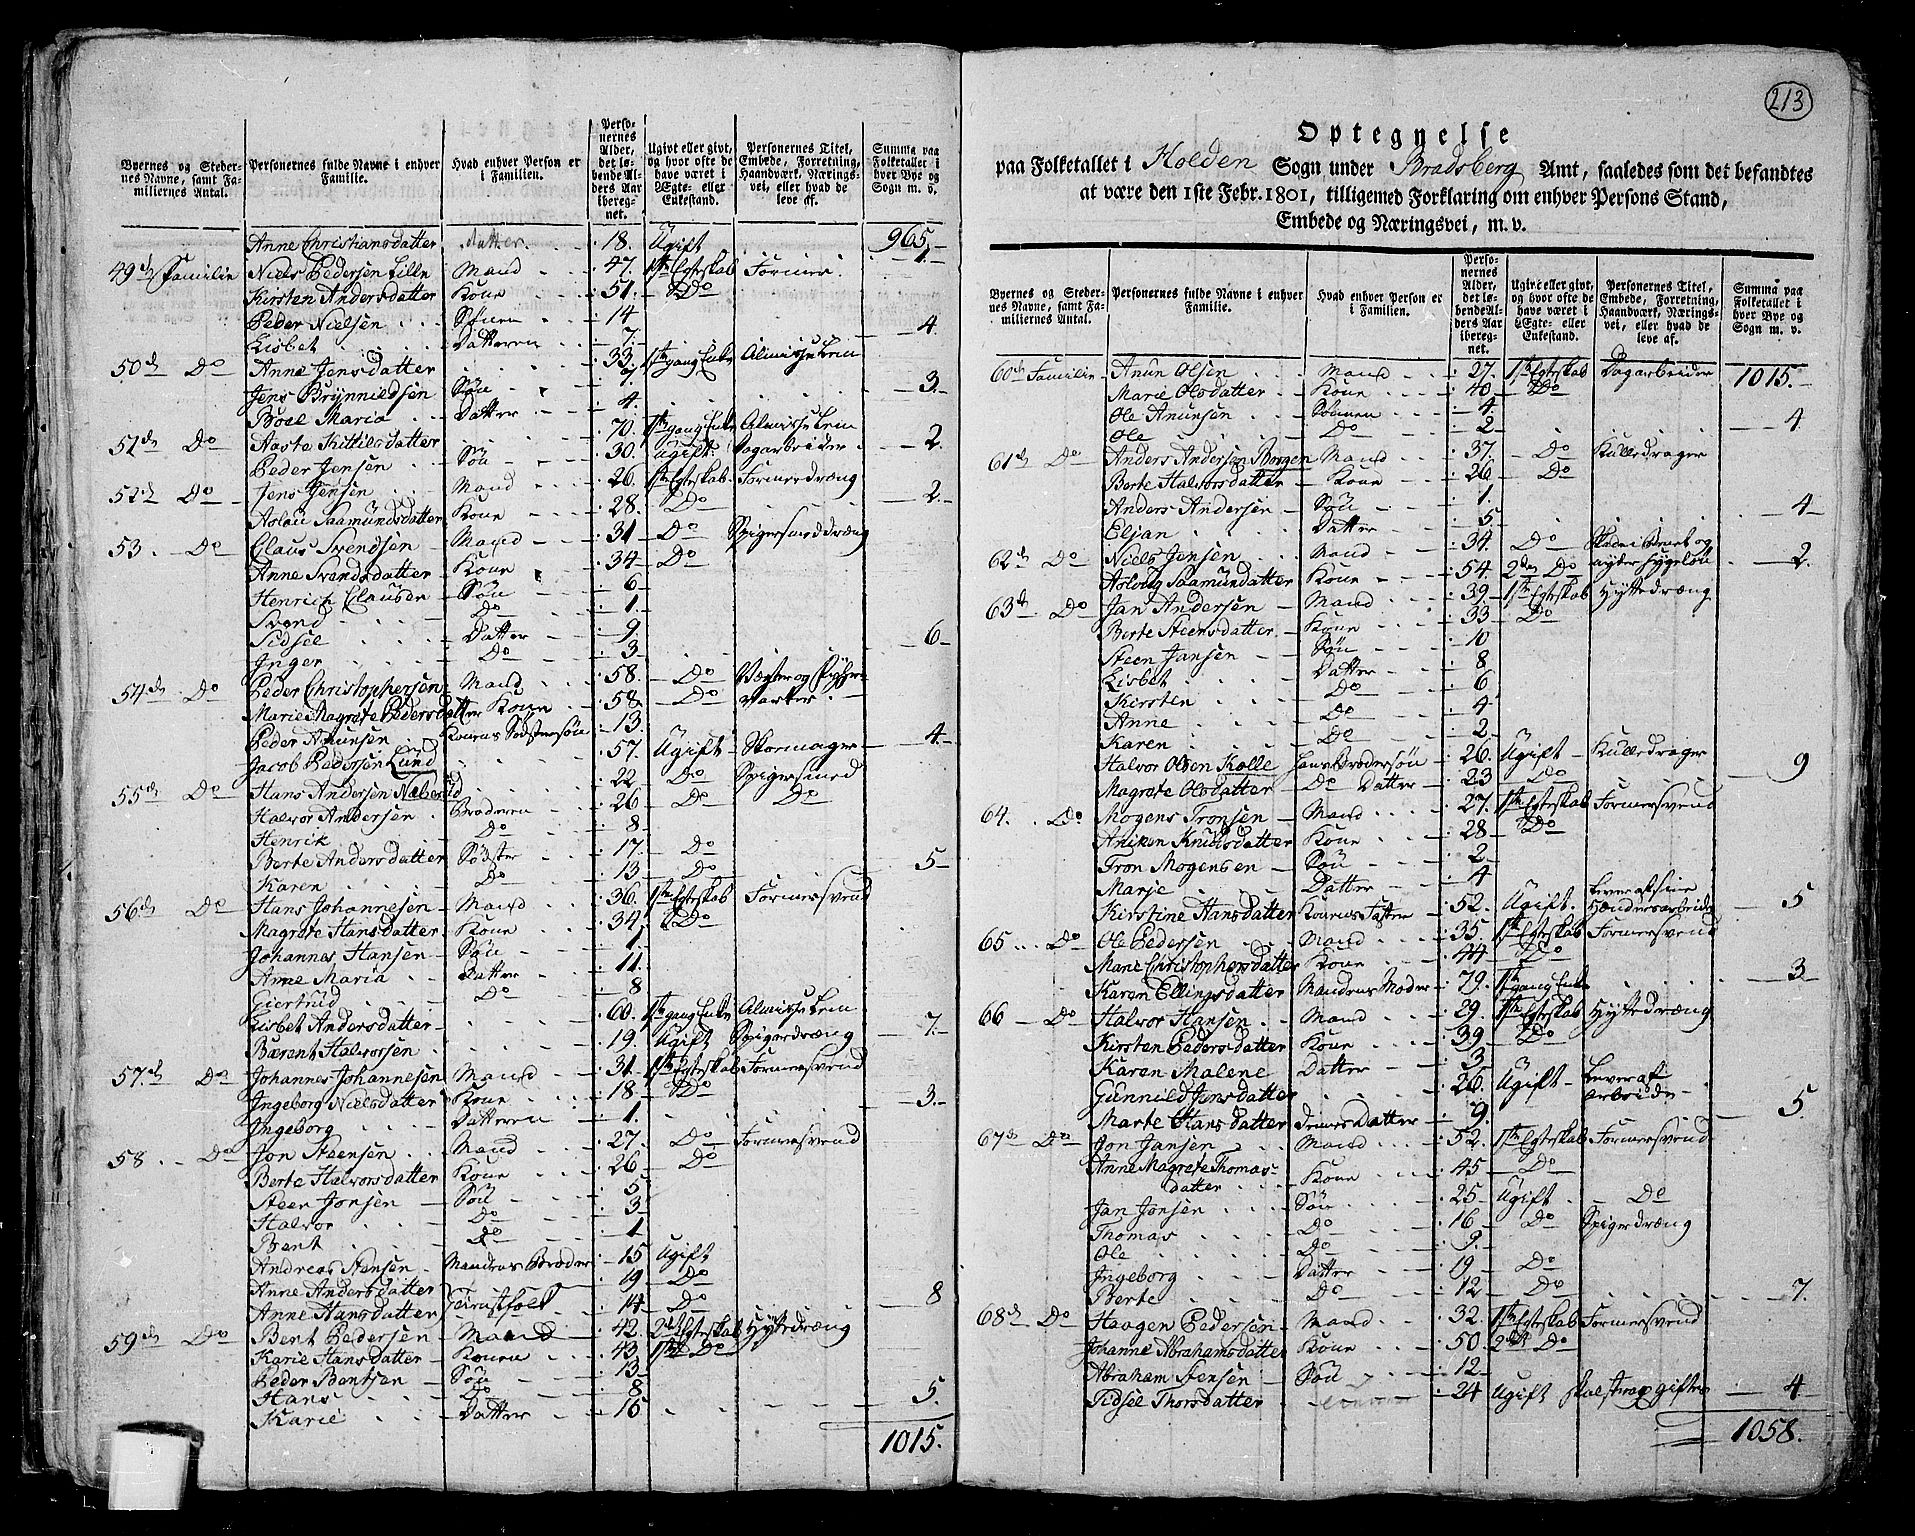 Byernes og Stedernes Navne, samt Familiernes Antal.
Personernes fulde Navne i enhver Familie.
Hvad enhver Person er i Familien.
Personernes Alder, det løbende Alders Aar iberegnet.
Ugivt eller givt, og hvor ofte de have været i Ægte- eller Enkestand.
Personernes Titel, Embede, Forretning, Haandværk, Næringsvei, eller hvad de leve af.
Summa paa Folketallet i hver Bye og Sogn m. v.
Anne Christiansdatter Datter 18. Ugift 965.
49de Familie Niels Pedersen Lille Mand 47. 1ste Egteskab Former 1.
Kirsten Andersdatter Kone 51. Do
Peder Nielsen Sønen 14
Lisbet Datteren 7. 4.
50de Do Anne Jensdatter 33. 1ste gang Enke Almisselem
Jens Brynnildsen Søn 7.
Boel Maria Datter 4. 3.
51de Do Aaste Kittilsdatter 70. 1ste gang Enke Almisselem
Peder Jensen Søn 30. Ugift. Dagarbeider 2.
52de Do Jens Jensen Mand 26. 1ste Egteskab Formerdræng
Aslau Saamundsdatter Kone 28. Do 2.
53. Do Claus Svendsen Mand 31 Do Spigersmeddræng
Anne Svendsdatter Kone 34 Do
Henrich Clausen Søn 6
Svend Do 1.
Sidsel Datter 9
Inger Do 3 6
54de Do Peder Christophersen Mand 58. Do Vægter og
Marie Magrete Pedersdatter Kone 58 Do
Peder Anunsen Konens Søstersøn 13.
Jacob Pedersen Lund 57. Ugift Skomager 4.
55de Do Hans Andersen 22 Do Spigersmed
Halvor Andersen Broderen 26 Do Do
Henrik Do 8
Berte Andersdatter Søster 17. Do
Karen Do 13 Do 5
56de Do Hans Johannesen Mand 36. 1ste Egteskab Formersvend
Magrete Hansdatter Kone 34 Do
Johannes Hansen Søn 1.
Anne Maria Datter 11.
Giertrud Do 8
Lisbet Andersdatter 60. 1ste gang Enke Almisselem
Bærent Halvorsen 19. Ugift Spigerdræng 7.
57.de Do Johannes Johannesen Mand 31. 1ste Egteskab Formersvend
Ingeborg Nielsdatter Kone 18 Do
Ingeborg Datteren 1. 3.
58 Do Jon Steensen Mand 27. Do Formersvend
Berte Halvorsdatter Kone 26 Do
Steen Jonsen Søn 5
Halvor Do 3
Bent Do 1
Andreas Stensen Mandens Broder 15 Ugift
Anne Andersdatter Tienestfolk 19 Do
Anne Hansdatter 14 Do 8
59de Do Bent Pedersen Mand 42. 2det Egteskab Hyttedræng
Karie Hansdatter Konen 43 1ste Do
Peder Bentsen Søn 13
Hans Do 8
Karie Datter 15 5.
1015.
213
Optegnelse
paa Folketallet i Holden Sogn under Bradsberg Amt, saaledes som det befandtes
at være den 1ste Febr. 1801, tilligemed Forklaring om enhver Persons Stand,
Embede og Næringsvei, m. v.
Byernes og Stedernes Navne, samt Familiernes Antal.
Personernes fulde Navne i enhver Familie.
Hvad enhver Person er i Familien.
Personernes Alder, det løbende Alders Aar iberegnet.
Ugivt eller givt, og hvor ofte de have været i Ægte- eller Enkestand.
Personernes Titel, Embede, Forretning, Haandværk, Næringsvei, eller hvad de leve af.
Summa paa Folketallet i hver Bye og Sogn m. v.
60de Familie Anun Olsen Mand 27. 1ste Egteskab Dagarbeider 1015.
Marie Olsdatter Kone 40 Do
Ole Anunsen Sønnen 4
Ole Do 2 4
61de Do Anders Andersen Borgen Mand 37. Do Kulledrager
Berte Halvorsdatter Kone 26 Do
Anders Andersen Søn 1.
Eljan Datter 5 4
62de Do Niels Jensen Mand 34. Do
Aslaug Saamundatter Kone 54. 2den Do 2.
63de Do Jan Andersen Mand 39. 1ste Egteskab Hyttedræng
Berte Steensdatter Kone 33 Do
Steen Jansen Søn 10
Lisbet Datter 8
Kirsten Do 6
Anne Do 4
Karen Do 2
Halvor Olsen Kolle Hans Brodersøn 26. Ugift Kulledrager
Magrete Olsdatter Do Datter 23 Do 9
64. Do Mogens Tronsen Mand 27. 1ste Egteskab Formersvend
Aniken Knudsdatter Kone 28 Do
Tron Mogensen Søn 2
Marje Datter 4
Kirstine Hansdatter Konens Søster 52. Ugift. Lever af sine Hænders arbeide 5
65 Do Ole Pedersen Mand 35. 1ste Egteskab Formersvend
Marie Christophersdatter Kone 44 Do
Karen Ellingsdatter Mandens Moder 79. 1ste gang Enke 3
66 Do Halvor Hansen Mand 29. 1ste Egteskab Hyttedræng
Kirsten Pedersdatter Kone 39 Do
Karen Malene Datter 3
Gunnild Jensdatter 26. Ugift Lever af Arbeide
Marte Hansdatter Datter 9. 5.
67de Do Jon Jansen Mand 52. 1ste Egteskab Formersvend
Anne Magrete Thomasdatter Kone 45 Do
Jan Jonsen Søn 25 Ugift Do
Thomas Do 16 Do Spigerdræng
Ole Do 9.
Ingeborg Datter 19 Do
Berte Do 12 Do 7.
68de Do Haagen Pedersen Mand 32. 1ste Egteskab Formersvend
Johanne Abrahamsdatter Kone 50. 2det Do
Abraham Stensen Søn 12
Sidsel Thorsdatter 24 Ugift skal strax giftes 4
1058.